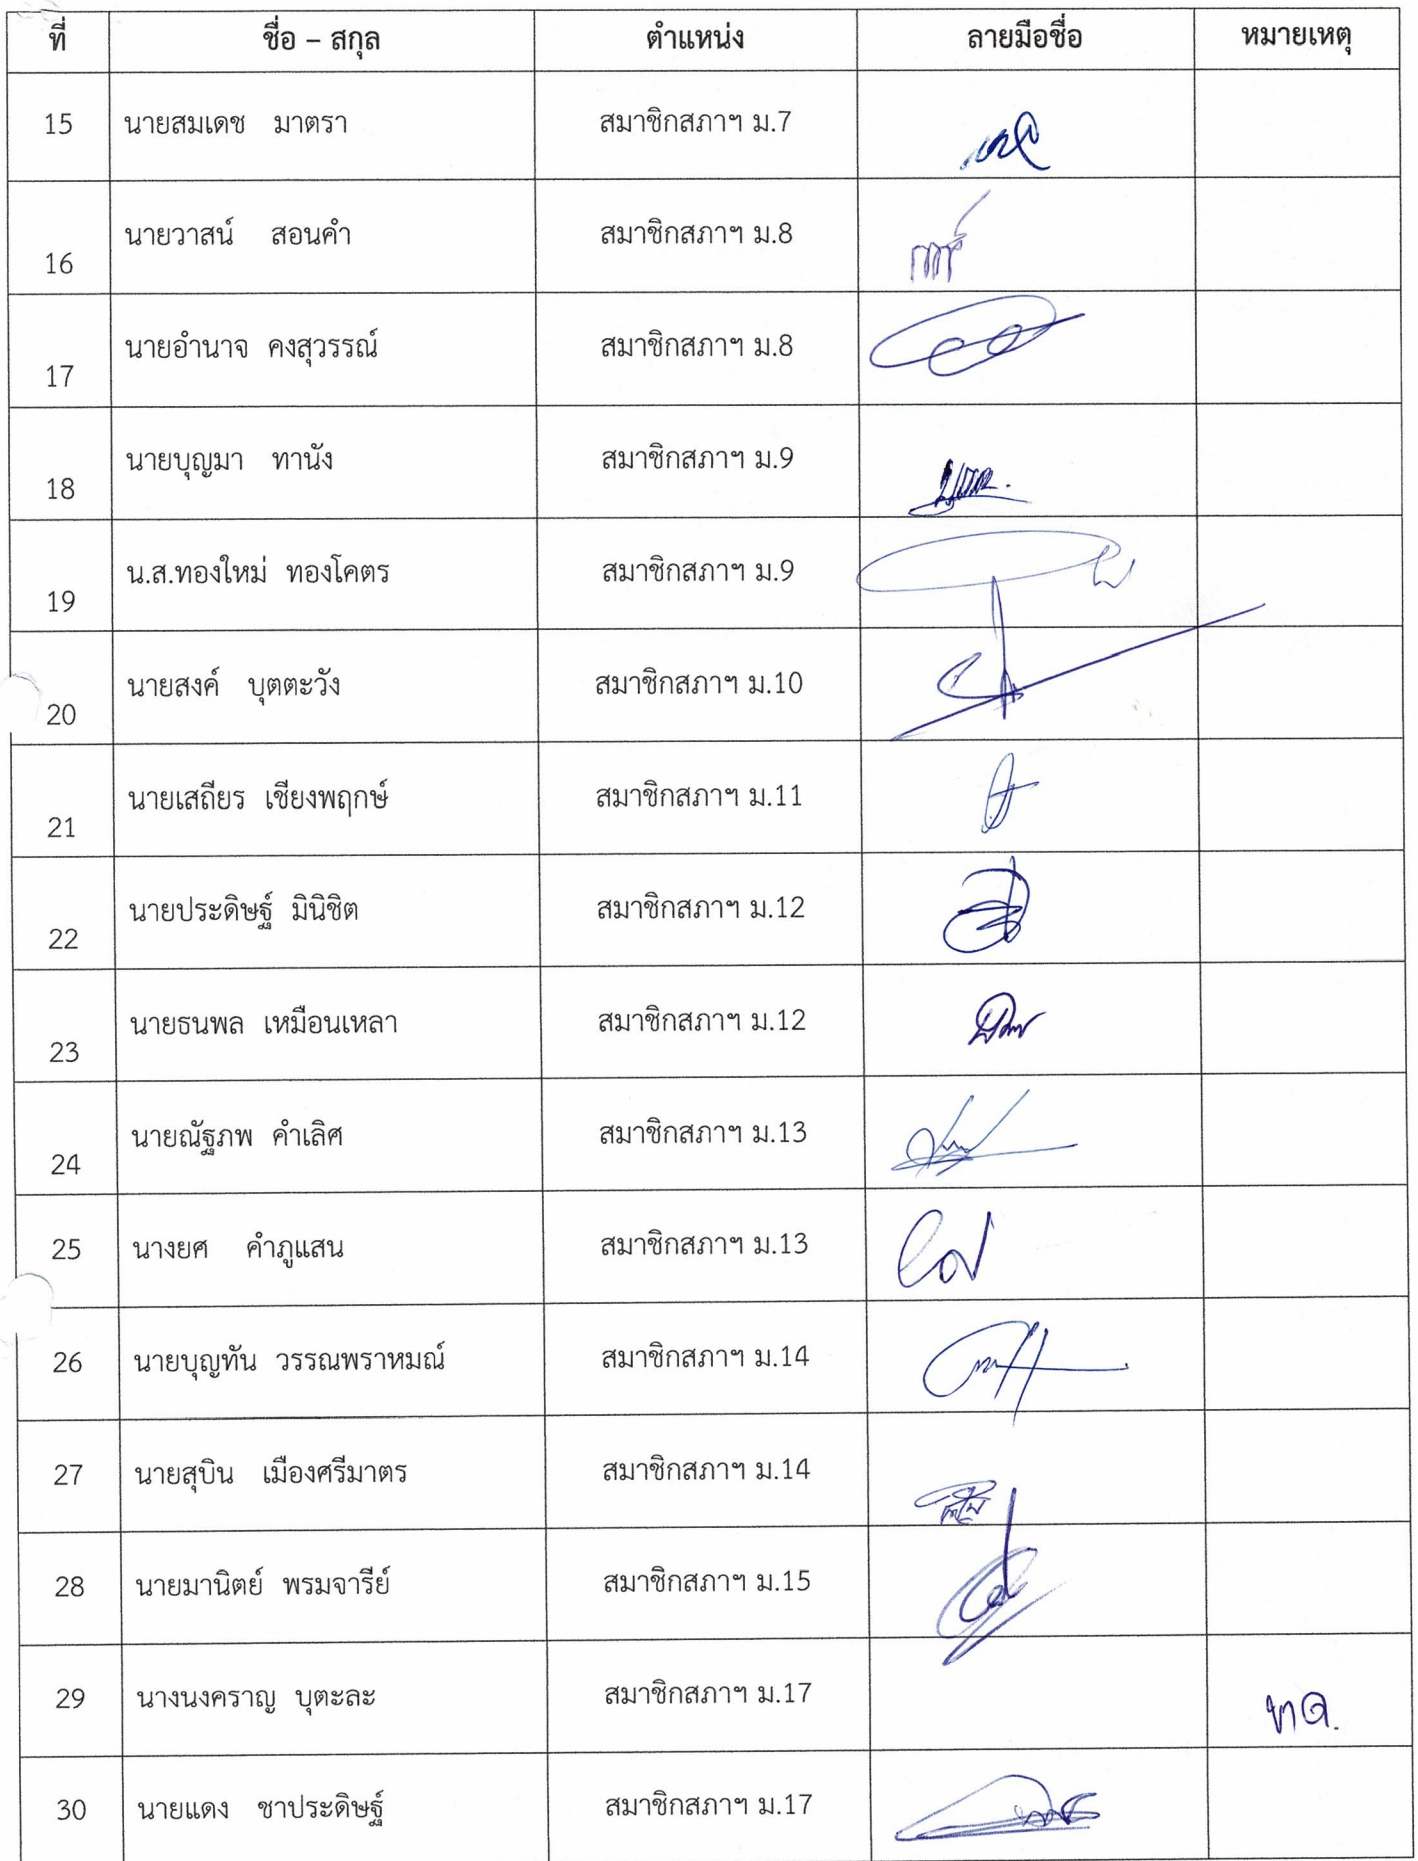 ที่ ชื่อ – สกุล ตำแหน่ง ลายมือชื่อ หมายเหตุ
15 นายสมเดช มาตรา สมาชิกสภาฯ ม.7
16 นายวาสน์ สอนคำ สมาชิกสภาฯ ม.8
17 นายอำนาจ คงสุวรรณ์ สมาชิกสภาฯ ม.8
18 นายบุญมา ทานัง สมาชิกสภาฯ ม.9
19 น.ส.ทองใหม่ ทองโคตร สมาชิกสภาฯ ม.9
20 นายสงค์ บุตตะวัง สมาชิกสภาฯ ม.10
21 นายเสถียร เชียงพฤกษ์ สมาชิกสภาฯ ม.11
22 นายประดิษฐ์ มินิชิต สมาชิกสภาฯ ม.12
23 นายธนพล เหมือนเหลา สมาชิกสภาฯ ม.12
24 นายณัฐภพ คำเลิศ สมาชิกสภาฯ ม.13
25 นางยศ คำภูแสน สมาชิกสภาฯ ม.13
26 นายบุญทัน วรรณพราหมณ์ สมาชิกสภาฯ ม.14
27 นายสุบิน เมืองศรีมาตร สมาชิกสภาฯ ม.14
28 นายมานิตย์ พรมจารีย์ สมาชิกสภาฯ ม.15
29 นางนงคราญ บุตะละ สมาชิกสภาฯ ม.17 ขาด.
30 นายแดง ชาประดิษฐ์ สมาชิกสภาฯ ม.17